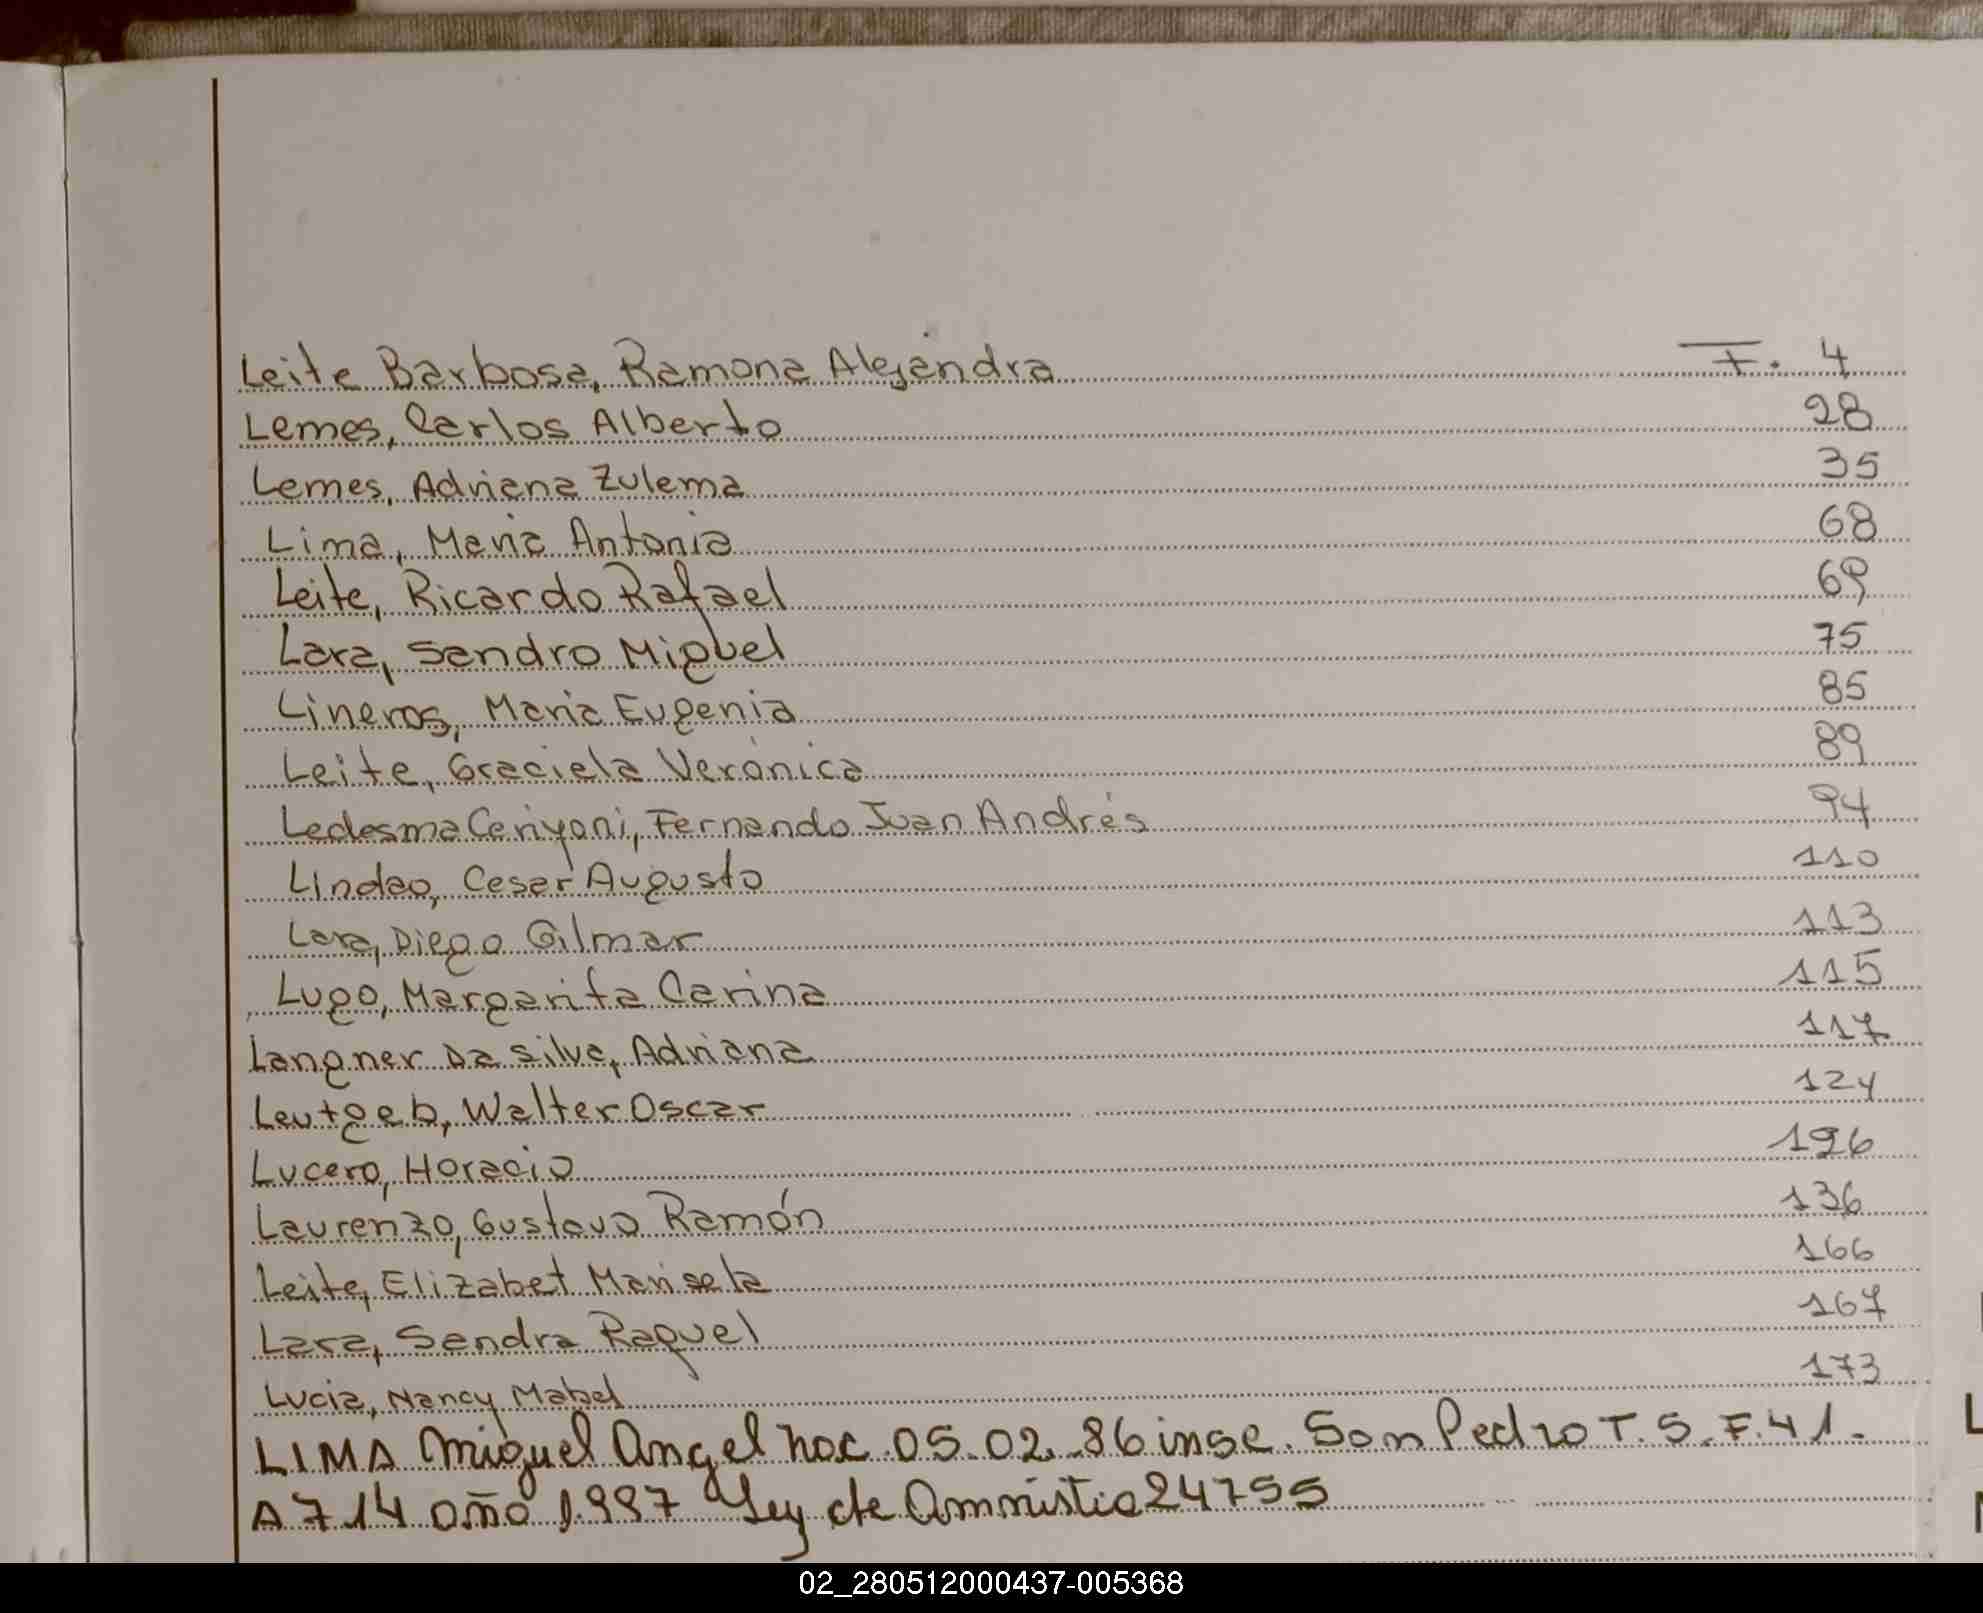 Leite Barbosa, Ramona Alejandra F. 4
Lemes, Carlos Alberto 28
Lemes, Adriana Zulema 35
Lima, Maria Antonia 68
Leite, Ricardo Rafael 69
Lara, Sandro Miguel 75
Lineros, Maria Eugenia 85
Leite, Graciela Verónica 89
Ledesma Ceriyoni, Fernando Juan Andrés 94
Lindao, Cesar Augusto 110
Lara, Diego Gilmar 113
Lugo, Margarita Carina 115
Langner Da Silva, Adriana 117
Leutgeb, Walter Oscar 124
Lucero, Horacio 126
Laurenzo, Gustavo Ramón 136
Leite, Elizabet Marisela 166
Lara, Sandra Raquel 167
Lucia, Nancy Mabel 173
LIMA Miguel Angel nac. 05.02.86 insc. San Pedro T. 5. F. 41.
A 714 año 1.997 Ley de Amnistia 24755
02_280512000437-005368